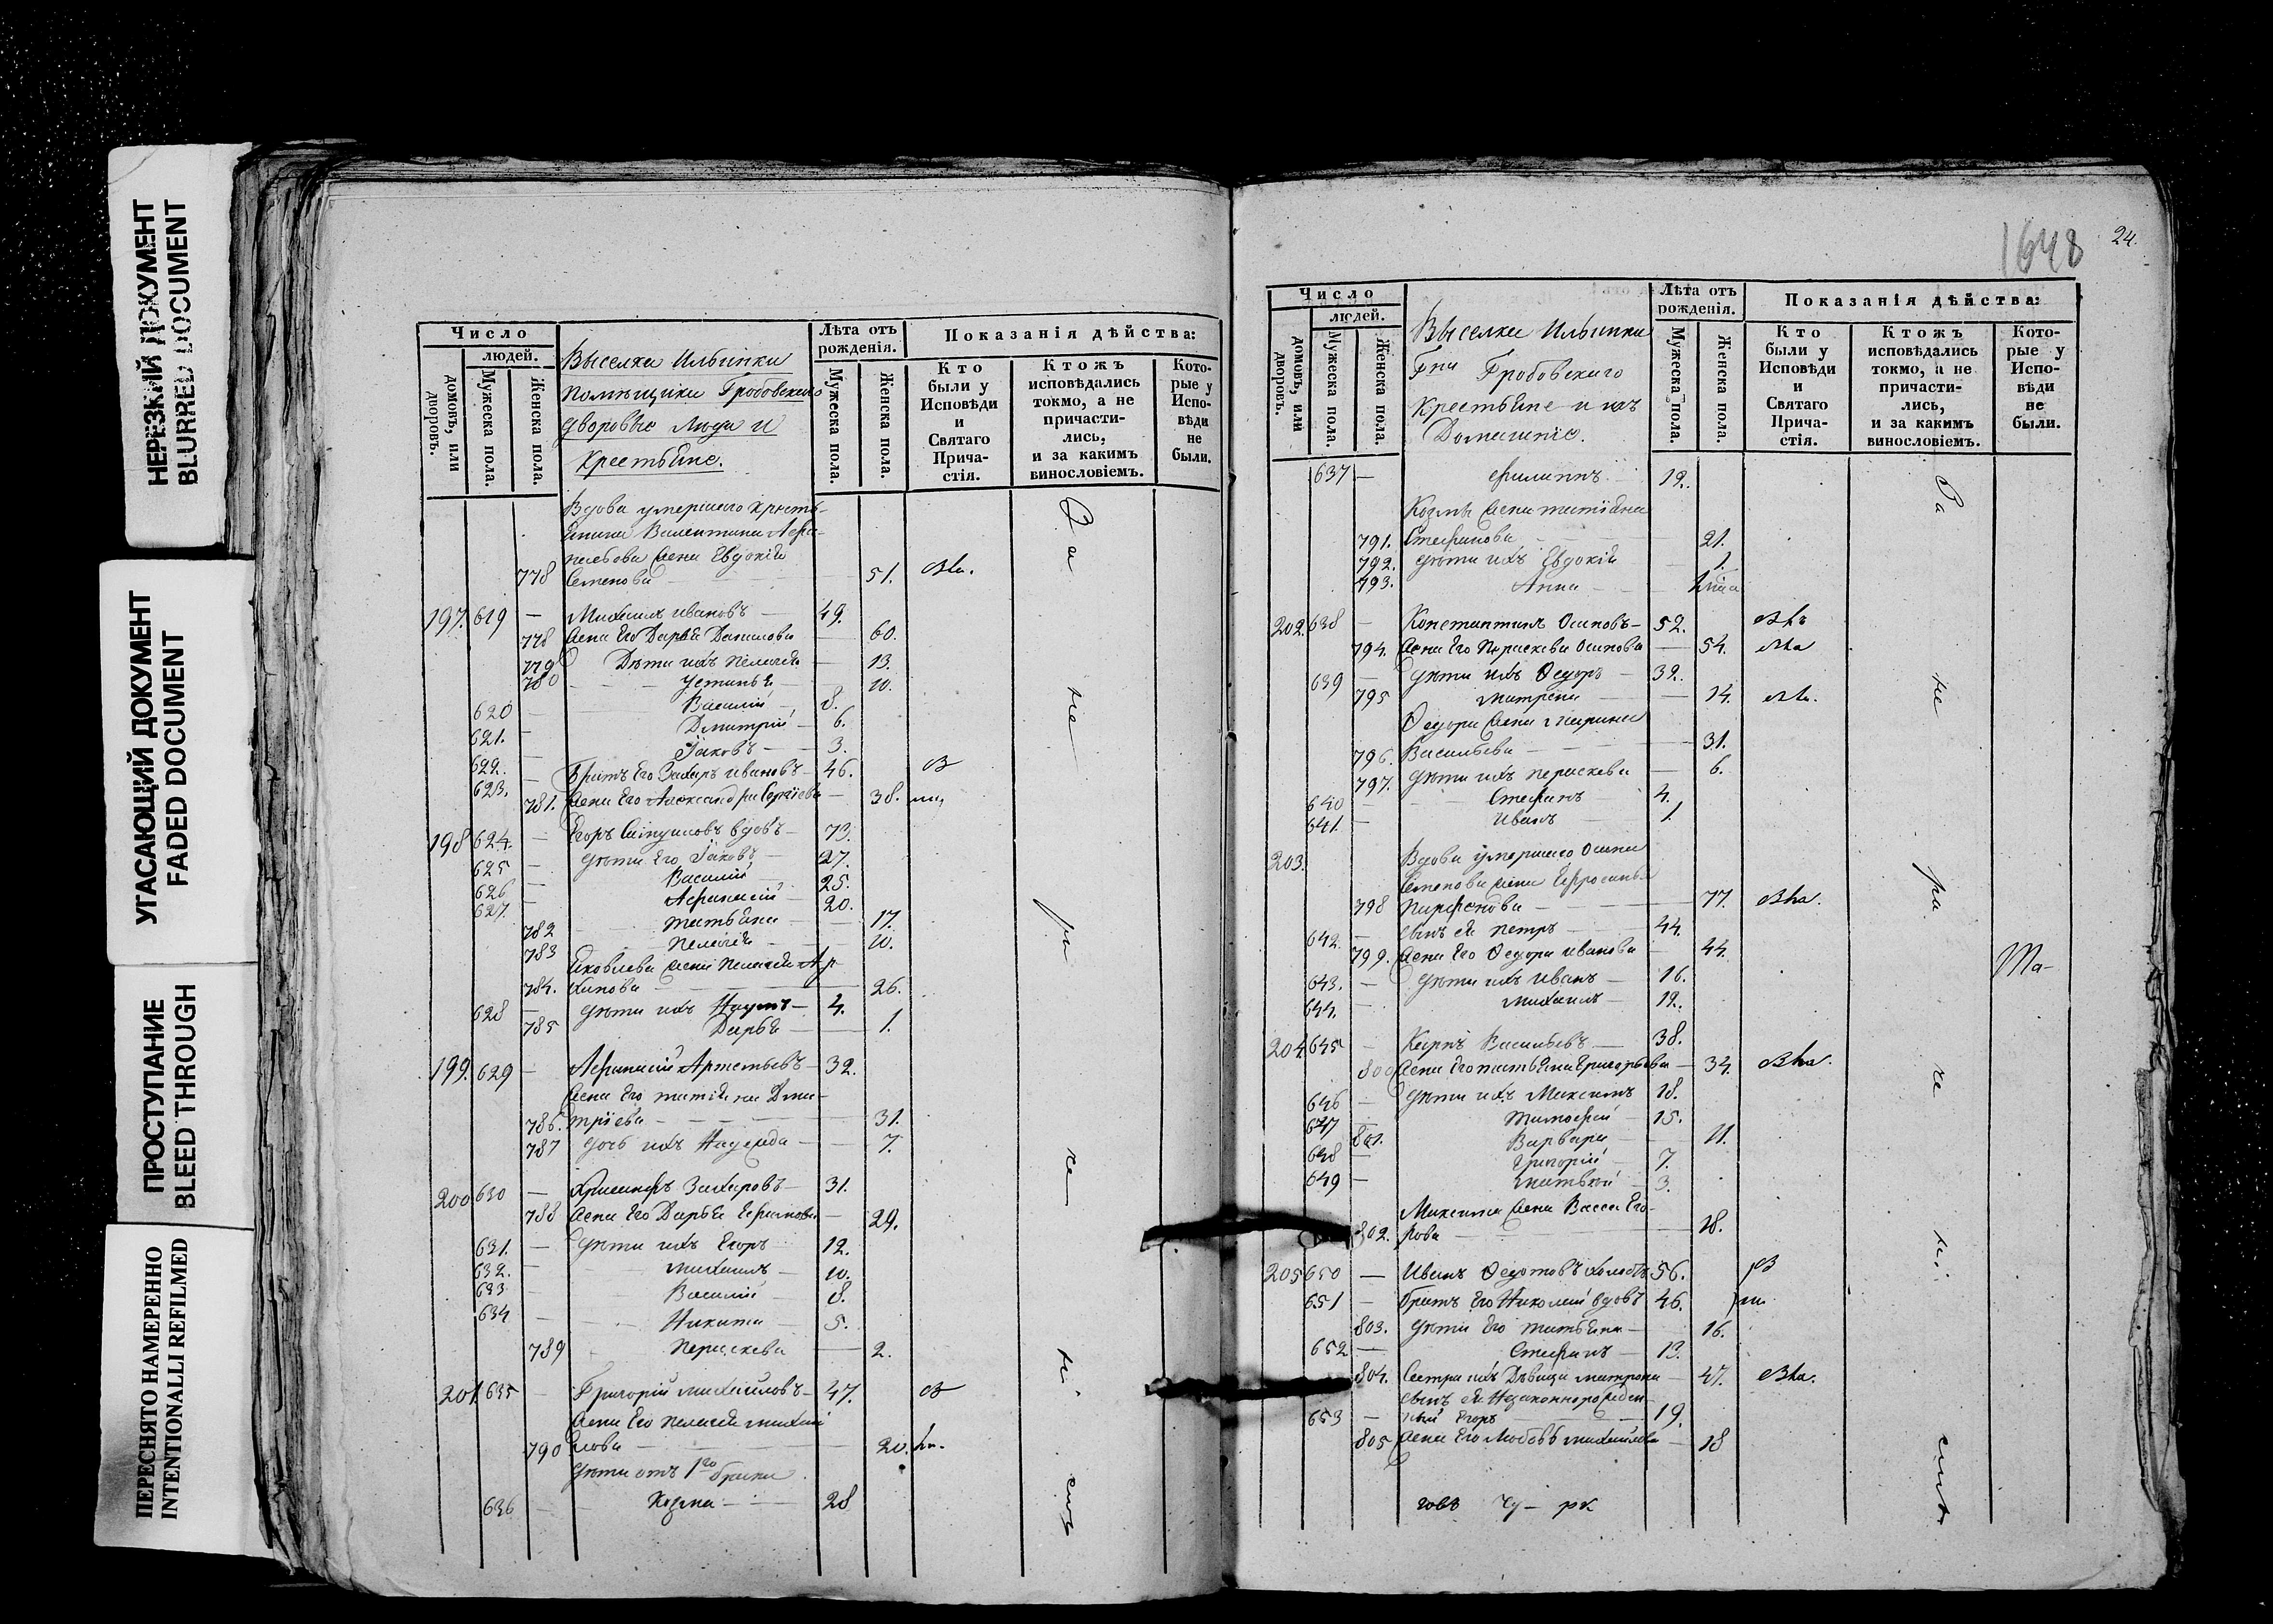 НЕРЕЗКИЙ ДОКУМЕНТ
BLURRED DOCUMENT
УГАСАЮЩИЙ ДОКУМЕНТ
FADED DOCUMENT
ПРОСТУПАНИЕ
BLEED THROUGH
ПЕРЕСНЯТО НАМЕРЕННО
INTENTIONALLI REFILMED
Число
людей.
домовъ, или дворовъ.
Мужеска пола.
Женска пола.
Выселка Ильинки
помѣщика Гробовскаго
дворовые люди и
Крестьяне.
Лѣта отъ рожденія.
Мужеска пола.
Женска пола.
Показанія дѣйства:
Кто были у Исповѣди и Святаго Прича-стія.
Ктожъ исповѣдались токмо, а не причасти-лись, и за какимъ винословіемъ.
Кото-рые у Испо-вѣди не были.
Вдова умершаго крестья-
нина Валентина
жена Евдокія
778 Семенова 51.
197. 619 Михаилъ Ивановъ 49.
778 жена Его Дарья Данилова 60.
779 Дѣти ихъ Пелагея 13.
780 Устинья 10.
620 Василій 8.
621. Дмитрій 6.
622. Іаковъ 3.
623. братъ Его Захаръ Ивановъ 46. В
781. жена Его Александра Сергіева 38.
198 624. Егоръ вдовъ 73.
625 дѣти Его Іаковъ 27.
626 Василій 25.
627. Афанасій 20.
782 Татьяна 17.
783 Пелагея 10.
Яковлева жена Пелагея Ар-
784. хипова 26.
628 дѣти ихъ Наумъ 4.
785 Дарья 1.
199. 629 Афанасій Артемьевъ 32.
жена Его Татіяна Дми-
786. тріева 31.
787 дочь ихъ Надежда 7.
200 630 Захаровъ 31.
788 жена Его Дарья Ефимова 29.
631. дѣти ихъ Егоръ 12.
632. Михаилъ 10.
633 Василій 8.
634 Никита 5.
789 Параскева 2.
201 635 Григорій Михайловъ 47. В
жена Его Пелагея Михай
790 лова 20.
дѣти отъ 1го брака
636 Козма 28
1648 24.
Число
людей.
домовъ, или дворовъ.
Мужеска пола.
Женска пола.
Выселка Ильинки
Гна Гробовскаго
Крестьяне и ихъ
Домашніе.
Лѣта отъ рожденія.
Мужеска пола.
Женска пола.
Показанія дѣйства:
Кто были у Исповѣди и Святаго Прича-стія.
Ктожъ исповѣдались токмо, а не причасти-лись, и за какимъ винословіемъ.
Кото-рые у Испо-вѣди не были.
637 Филиппъ 12.
Козмы жена Татіяна
791. Стефанова 21.
792. дѣти ихъ Евдокія 1.
793. Анна
202. 638 Константинъ Осиповъ 52.
794. жена Его Параскева Осипова 54.
639 дѣти ихъ Ѳедоръ 32.
795 Матрена 14.
Ѳедора жена Марина
796. Васильева 31.
797. дѣти ихъ Параскева 6.
640 Стефанъ 4.
641. Иванъ 1.
203. Вдова умершаго Осипа
Семенова жена Ефросинья
798 Парфенова 77.
642. сынъ ея Петръ 44.
799. жена Его Ѳедора Иванова 44.
643. дѣти ихъ Иванъ 16.
644. Михаилъ 12.
204 645 Карпъ Васильевъ 38.
800 жена Его Татьяна Григорьева 34.
646 дѣти ихъ Максимъ 18.
647 Тимофей 15.
801. Варвара 11.
648 Григорій 7.
649 Матвей 3.
Максима жена Васса Его-
802. рова 18.
205 650 Иванъ Ѳедотовъ холостъ 56. В
651 братъ Его Николай вдовъ 46.
803. дѣти Его Татьяна 16.
652 Стефанъ 13.
804. Сестра ихъ Дѣвица Матрона 47.
сынъ ея Незаконнорожден-
653 ный Егоръ 19.
805 жена Его Любовь Михайлова 18